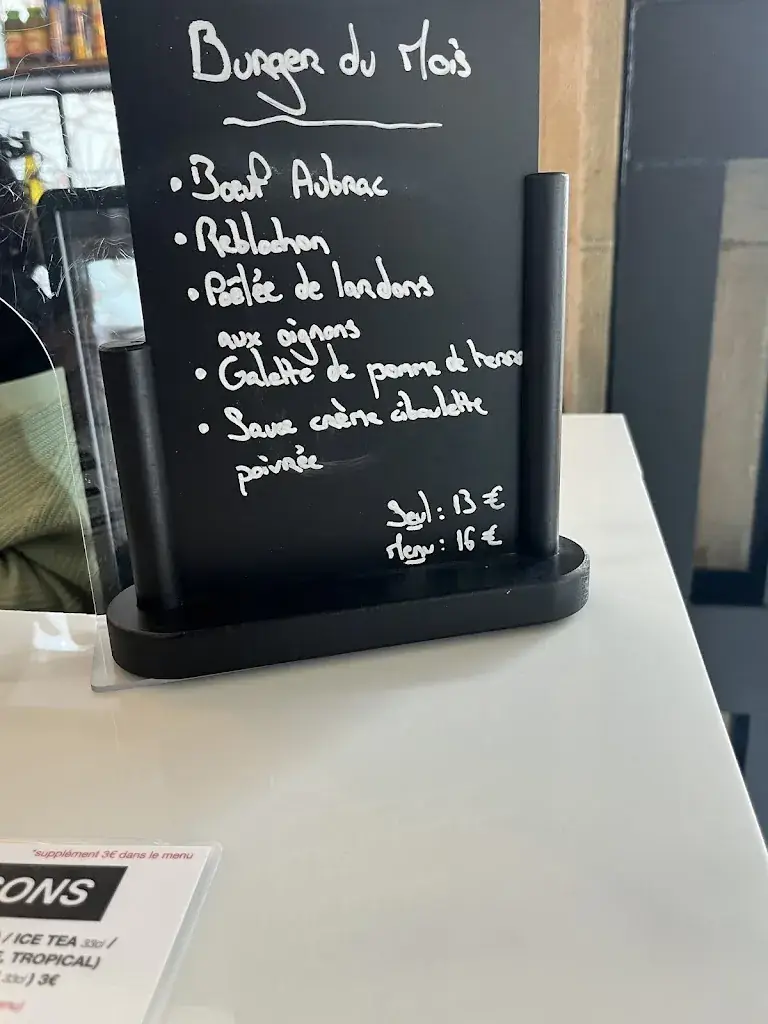 Burger du Mois
• Boeuf Aubrac
• Reblochon
• Poêlée de lardons
aux oignons
• Galette de pomme de terre
• Sauce crème ciboulette
poivrée
Seul : 13 €
Menu : 16 €
*supplément 3€ dans le menu
SONS
/ ICE TEA 33cl /
, TROPICAL)
33cl ) 3€